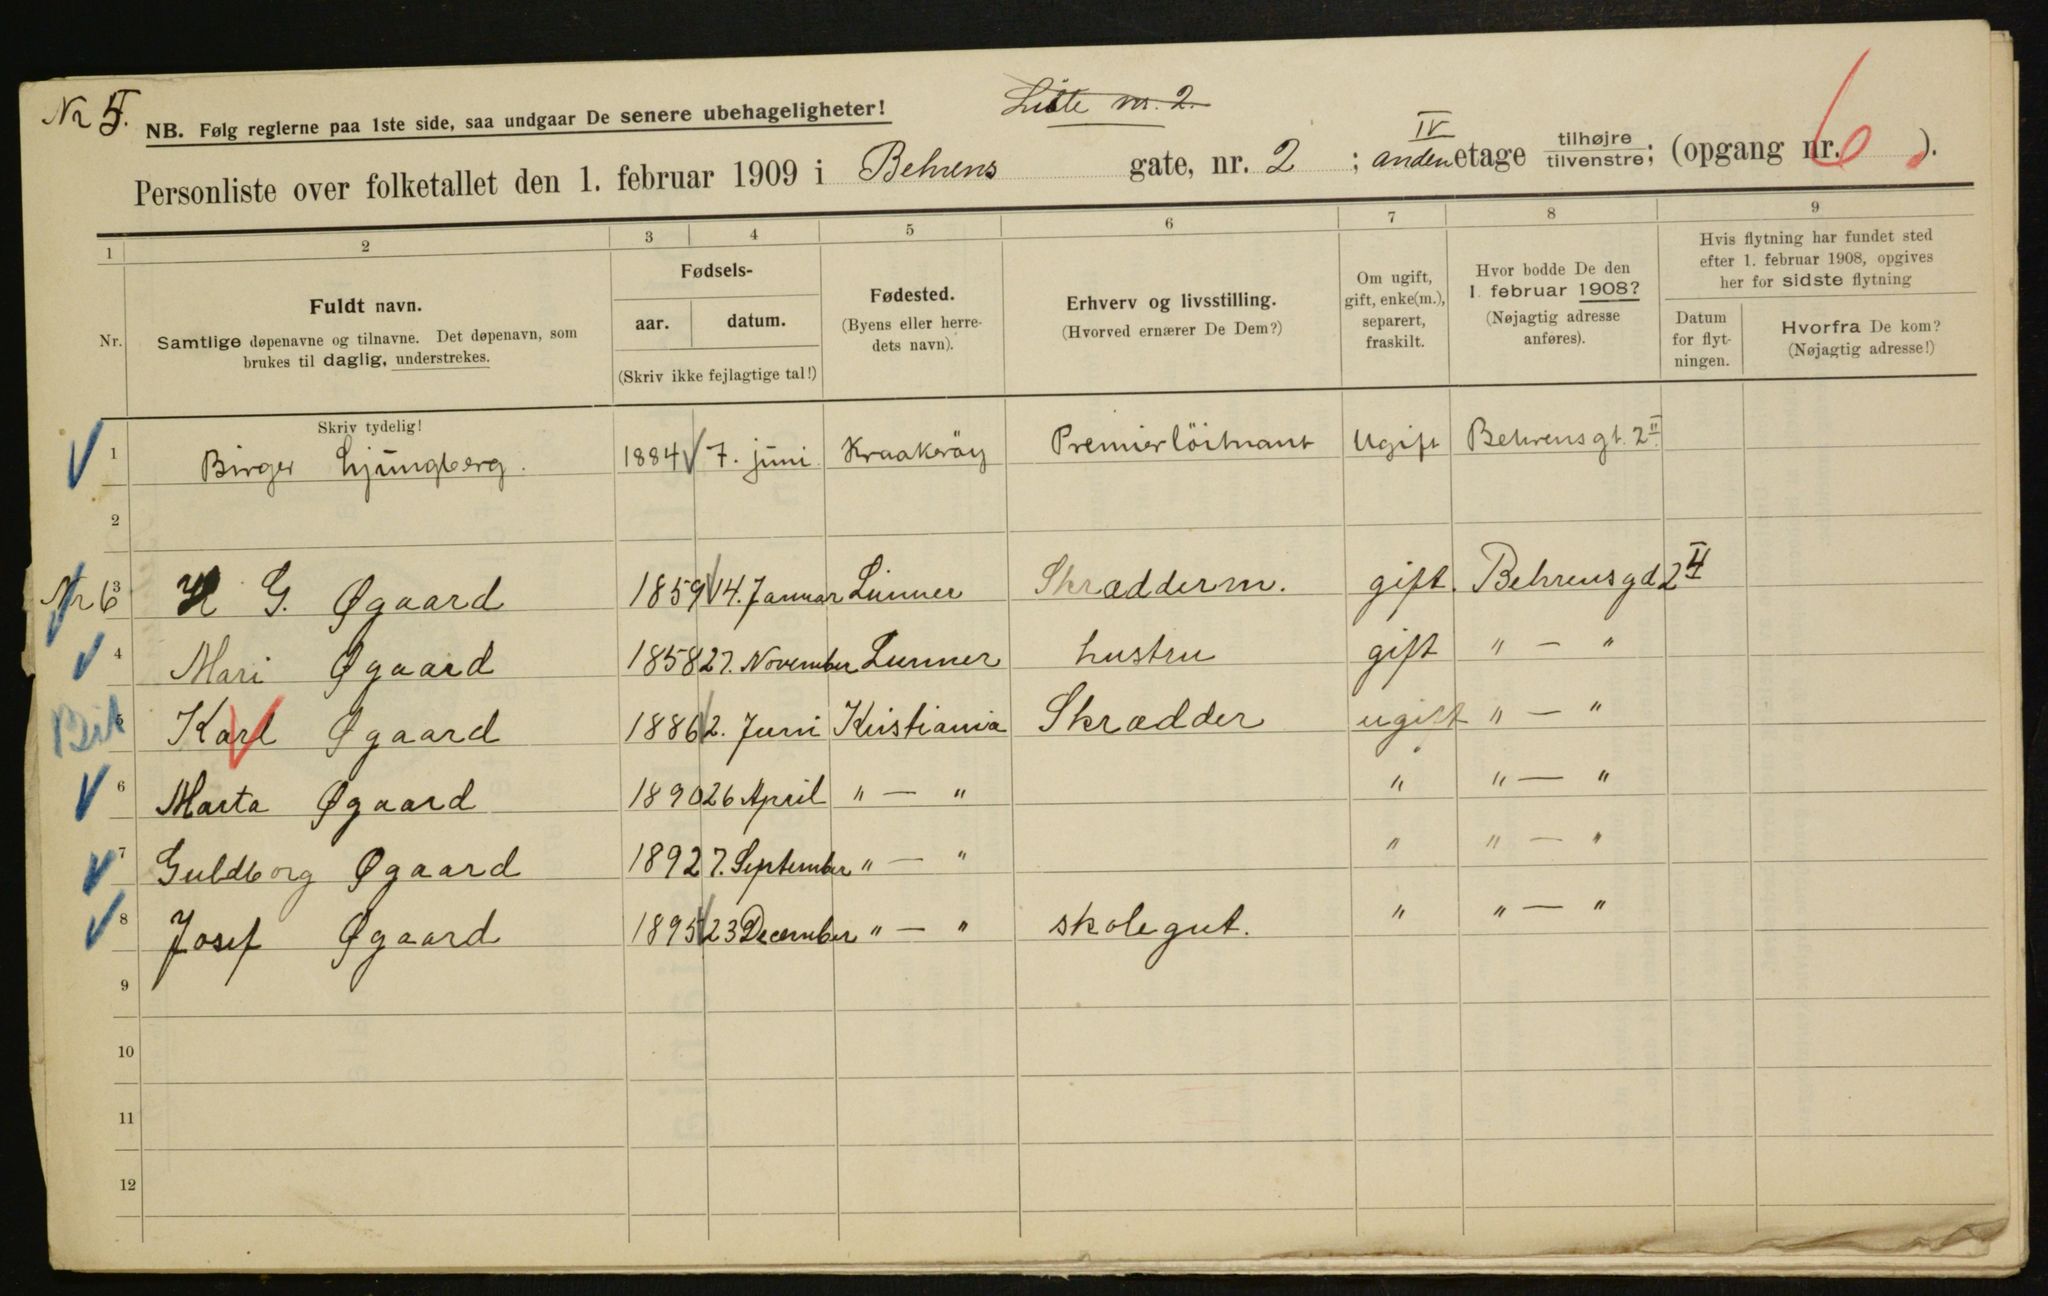 Nr 5.
Liste nr. 2.
NB. Følg reglerne paa 1ste side, saa undgaar De senere ubehageligheter!
IV
Personliste over folketallet den 1. februar 1909 i Behrens gate, nr. 2 ; anden etage tilhøjre tilvenstre; (opgang nr. 6 ).
1 2 3 4 5 6 7 8 9
Nr.
Fuldt navn.
Samtlige døpenavne og tilnavne. Det døpenavn, som
brukes til daglig, understrekes.
Fødsels-
aar. datum.
(Skriv ikke fejlagtige tal!)
Fødested.
(Byens eller herre-
dets navn).
Erhverv og livsstilling.
(Hvorved ernærer De Dem?)
Om ugift,
gift, enke(m.),
separert,
fraskilt.
Hvor bodde De den
1. februar 1908?
(Nøjagtig adresse
anføres).
Hvis flytning har fundet sted
efter 1. februar 1908, opgives
her for sidste flytning
Datum
for flyt-
ningen.
Hvorfra De kom?
(Nøjagtig adresse!)
Skriv tydelig!
1 Birger Ljungberg. 1884 7. juni Kraakeröy Premierlöitnant Ugift Behrensgt. 2 II
2
Nr 6 3 G. Øgaard 1859 14. Januar Lunner Skrædderm. gift. Behrensgd 2
4 Mari Øgaard 1858 27. November Lunner hustru gift " — "
5 Karl Øgaard 1886 2. Juni Kristiania Skrædder ugift " — "
6 Marta Øgaard 1890 26 April " — " " " — "
7 Guldborg Øgaard 1892 7. September " — " " " — "
8 Josef Øgaard 1895 23 December " — " skolegut. " " — "
9
10
11
12